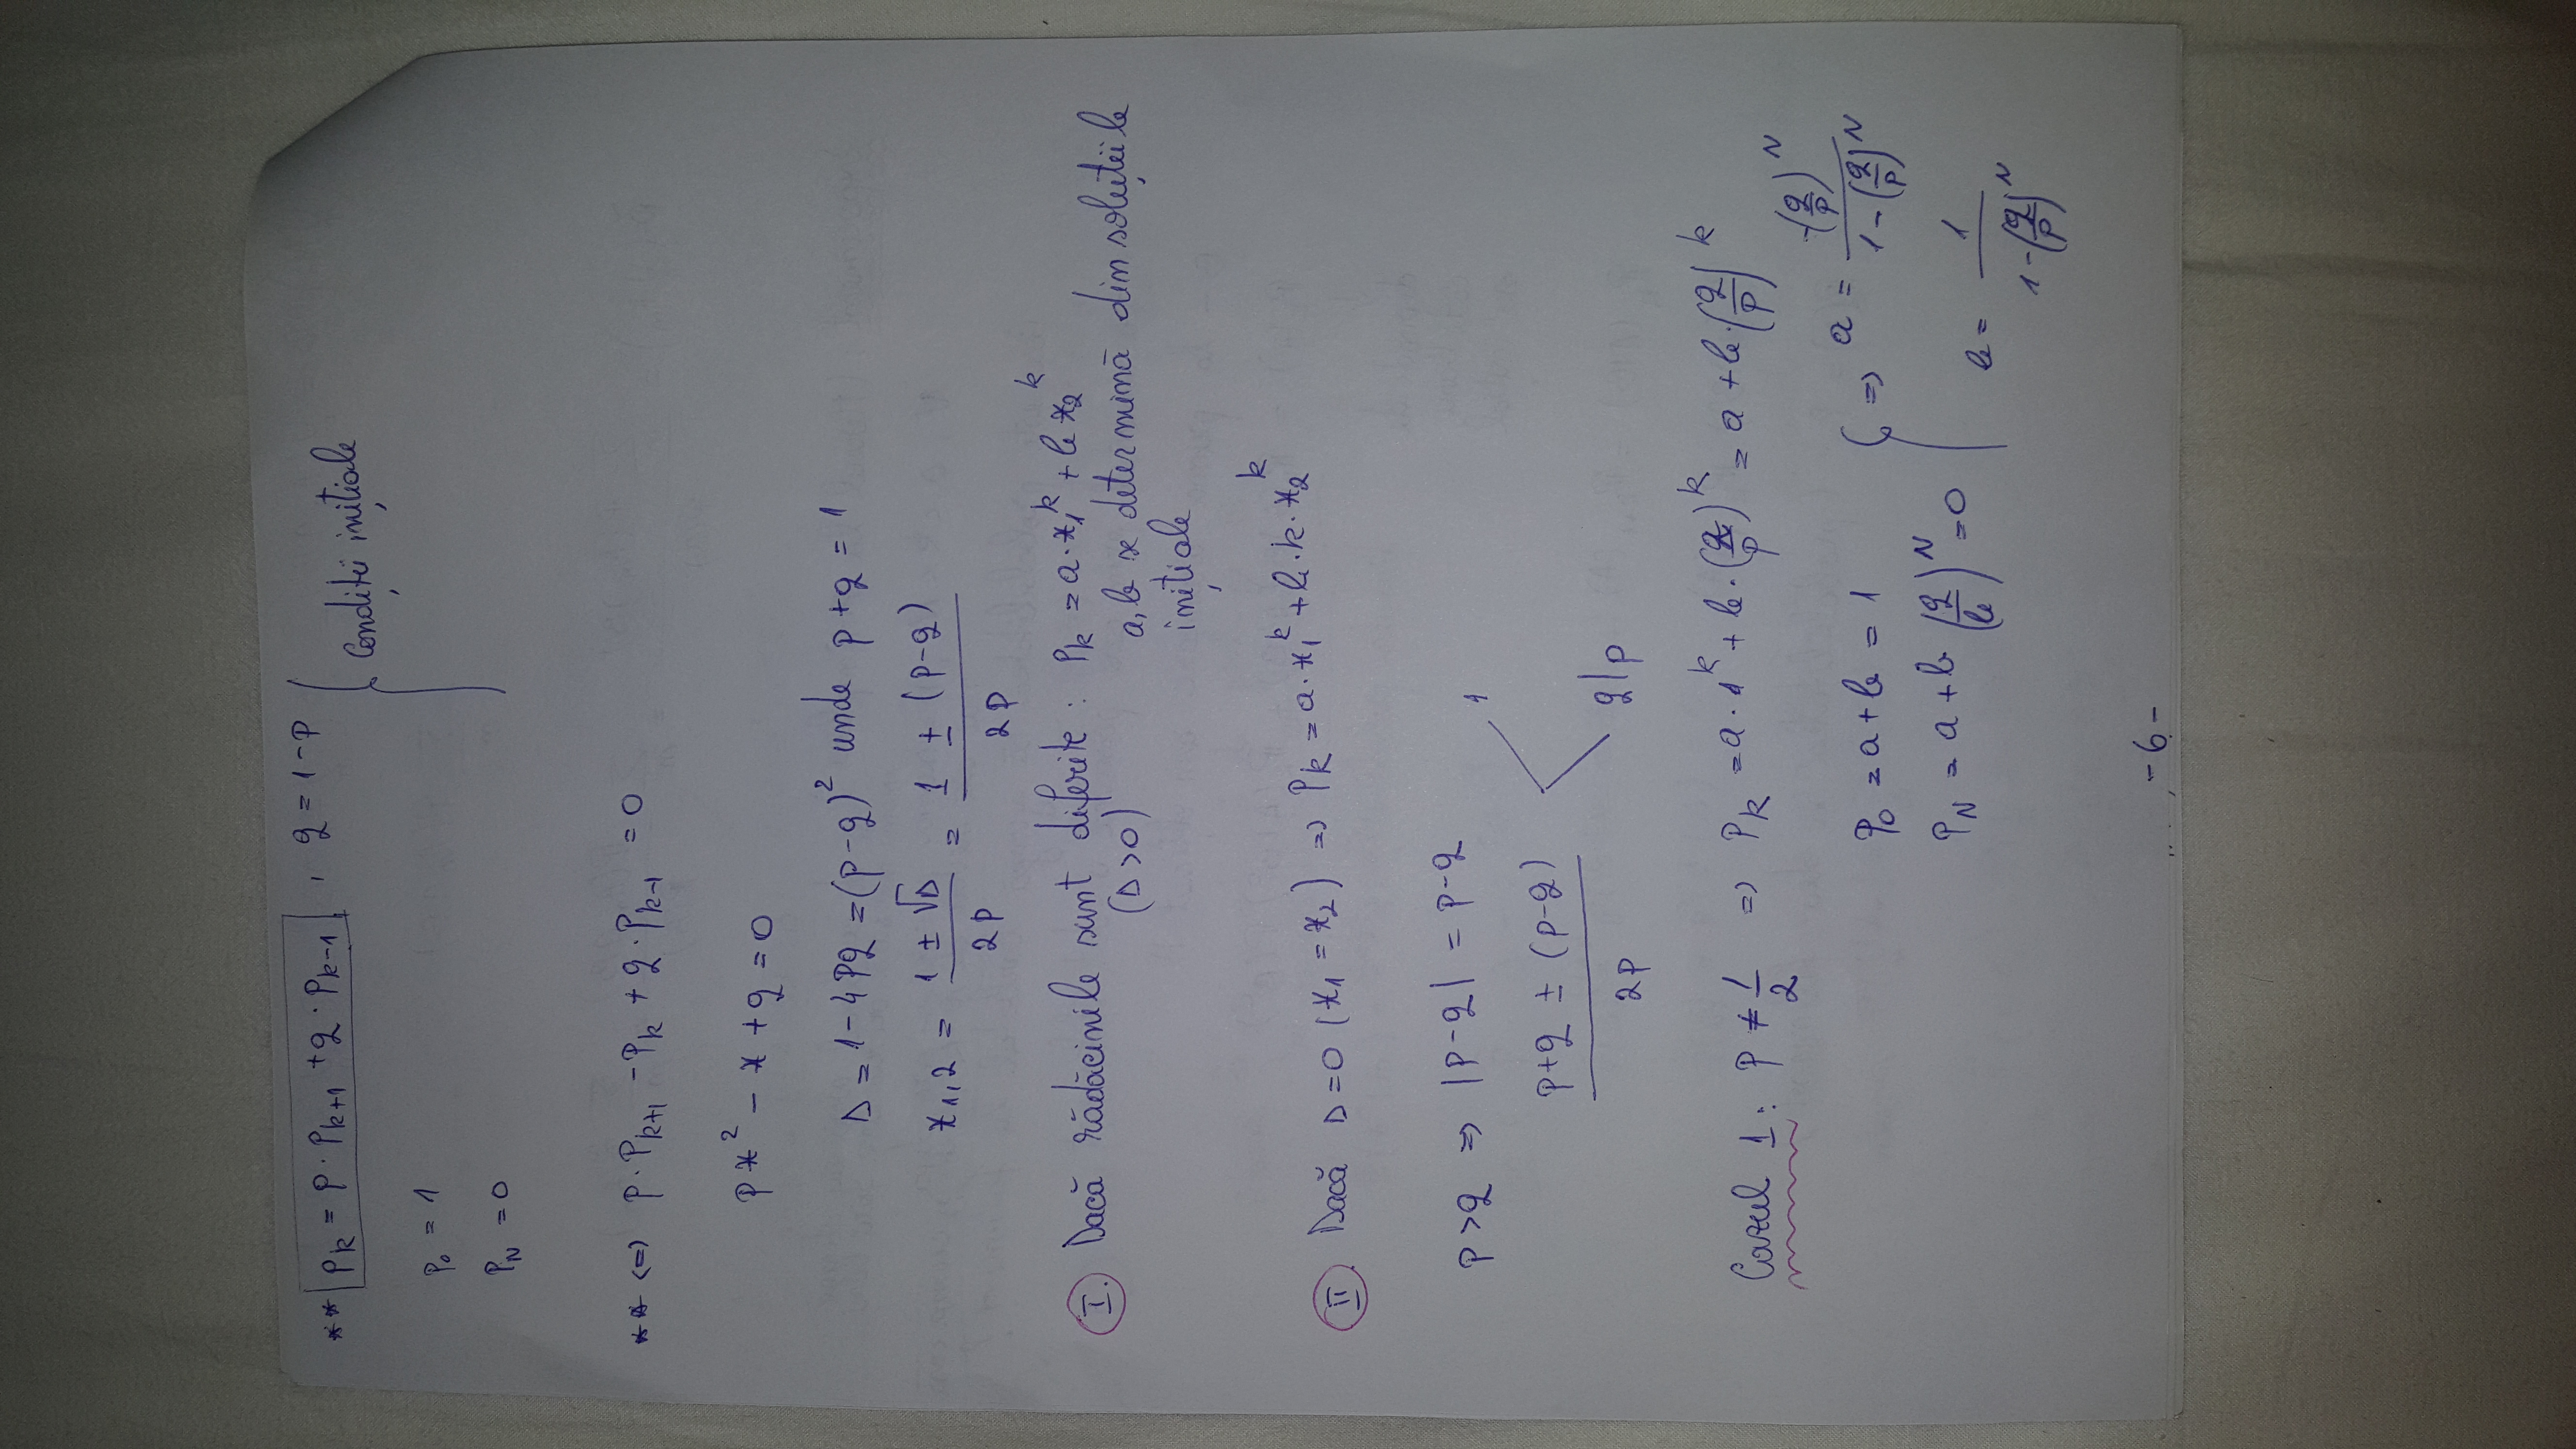 ** p_k = p · p_{k+1} + q · p_{k-1} , q = 1 - p } Condiții inițiale
p_0 = 1
p_N = 0
** <=> p · p_{k+1} - p_k + q · p_{k-1} = 0
p x^2 - x + q = 0
Δ = 1 - 4pq = (p - q)^2 unde p + q = 1
x_{1,2} = (1 ± √Δ) / 2p = (1 ± (p - q)) / 2p
I. Dacă rădăcinile sunt diferite : p_k = a · x_1^k + b x_2^k
(Δ > 0) a, b se determină din soluțiile
inițiale
II. Dacă Δ = 0 (x_1 = x_2) => p_k = a · x_1^k + b · k · x_2^k
p > q => |p - q| = p - q
(p + q ± (p - q)) / 2p < 1
q/p
Cazul 1 : p ≠ 1/2 => p_k = a · 1^k + b · (q/p)^k = a + b · (q/p)^k
p_0 = a + b = 1 } => a = -(q/p)^N / (1 - (q/p)^N)
p_N = a + b (q/b)^N = 0 b = 1 / (1 - (q/p)^N)
- 6 -